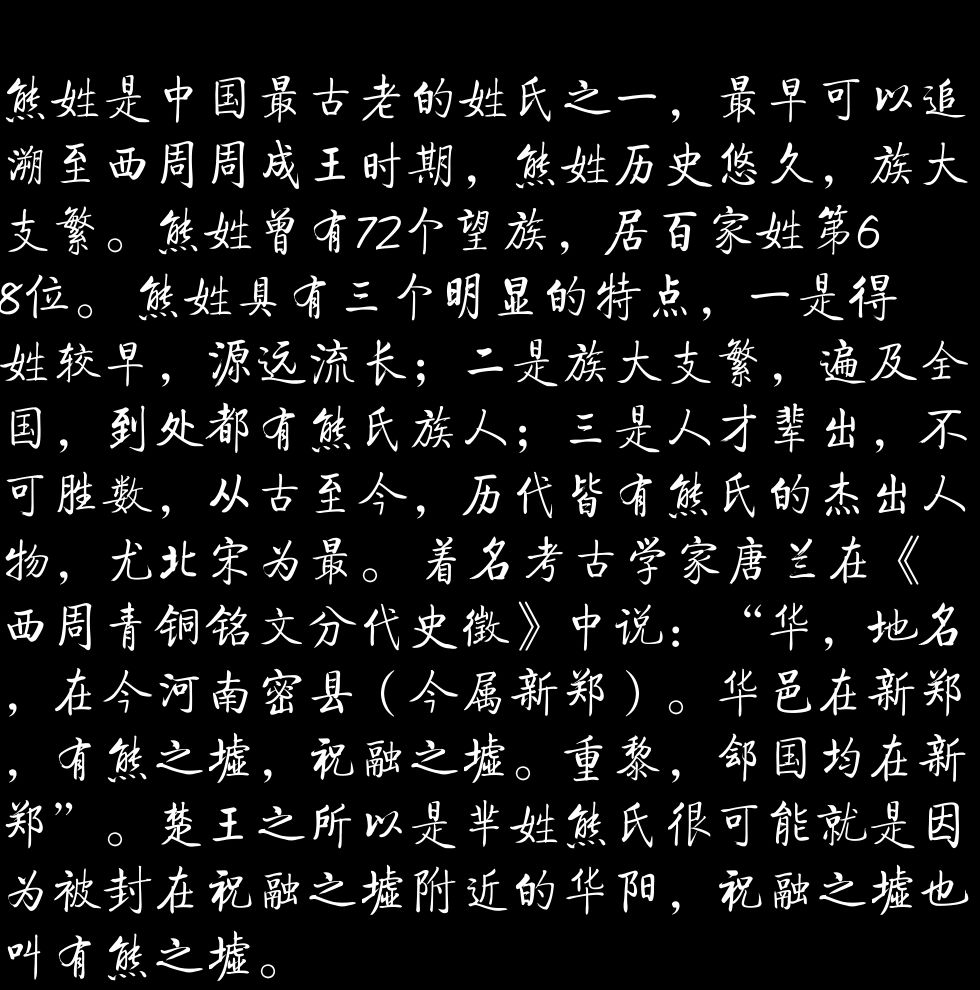 熊姓是中国最古老的姓氏之一，最早可以追
溯至西周周成王时期，熊姓历史悠久，族大
支繁。熊姓曾有72个望族，居百家姓第6
8位。熊姓具有三个明显的特点，一是得
姓较早，源远流长；二是族大支繁，遍及全
国，到处都有熊氏族人；三是人才辈出，不
可胜数，从古至今，历代皆有熊氏的杰出人
物，尤北宋为最。着名考古学家唐兰在《
西周青铜铭文分代史徵》中说：“华，地名
，在今河南密县（今属新郑）。华邑在新郑
，有熊之墟，祝融之墟。重黎，郐国均在新
郑”。楚王之所以是芈姓熊氏很可能就是因
为被封在祝融之墟附近的华阳，祝融之墟也
叫有熊之墟。